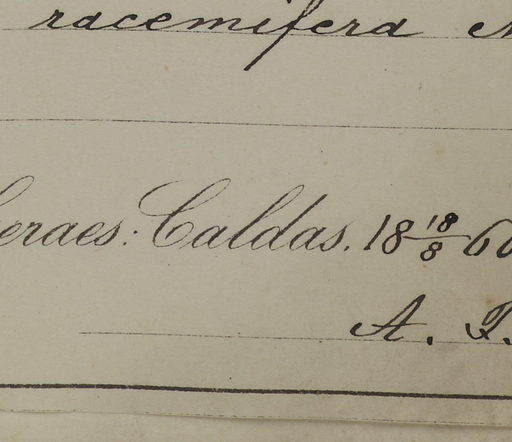 racemifera
eraes: Caldas. 18 18/8 6
A.